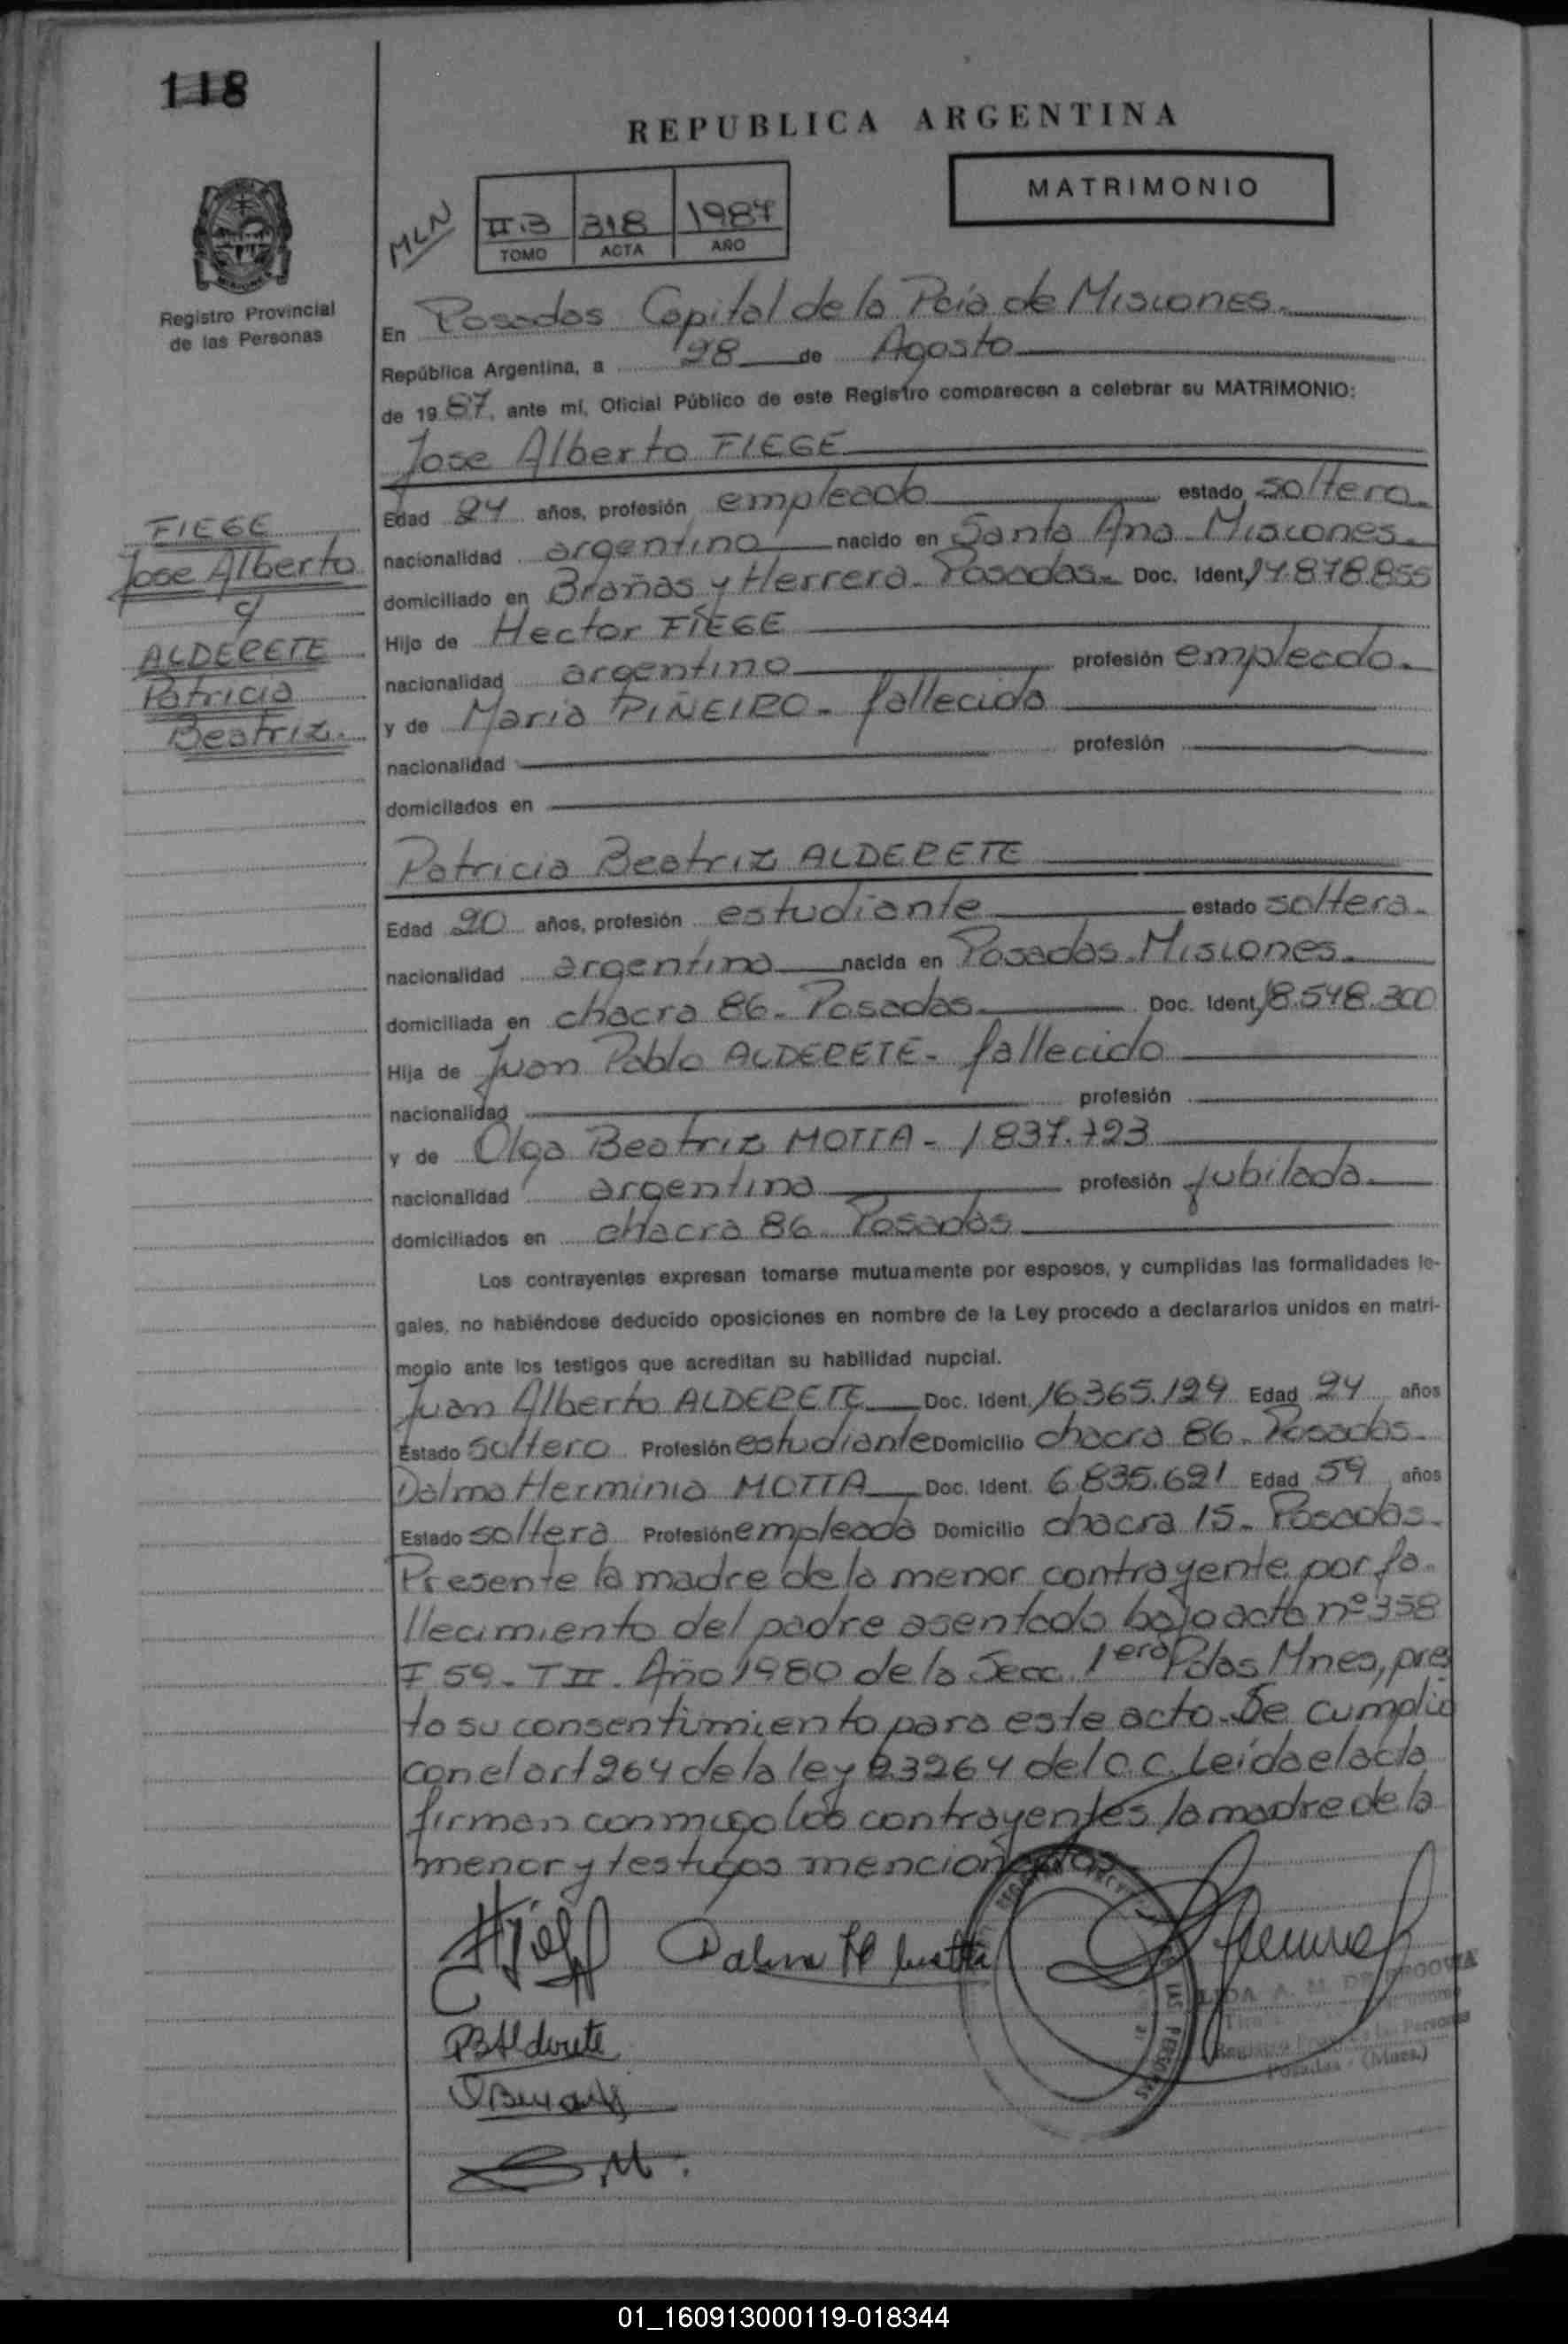 118
REPUBLICA ARGENTINA
MATRIMONIO
MLN
II.3 318 1987
TOMO ACTA AÑO
Registro Provincial
de las Personas
En Posadas Capital de la Pcia de Misiones.
República Argentina, a 28 de Agosto
de 1987, ante mí, Oficial Público de este Registro comparecen a celebrar su MATRIMONIO:
Jose Alberto FIEGE
Edad 24 años, profesión empleado estado soltero.
nacionalidad argentino nacido en Santa Ana Misiones.
domiciliado en Brañas y Herrera. Posadas. Doc. Ident. 14.878.855
Hijo de Hector FIEGE
nacionalidad argentino profesión empleado.
y de Maria PIÑEIRO - fallecida
nacionalidad profesión
domiciliados en
FIEGE
Jose Alberto
c/
ALDERETE
Patricia
Beatriz.
Patricia Beatriz ALDERETE
Edad 20 años, profesión estudiante estado soltera.
nacionalidad argentina nacida en Posadas. Misiones.
domiciliada en chacra 86. Posadas. Doc. Ident. 18.548.300
Hija de Juan Pablo ALDERETE - fallecido
nacionalidad profesión
y de Olga Beatriz MOTTA - 1.837.723
nacionalidad argentina profesión jubilada.
domiciliados en chacra 86. Posadas
Los contrayentes expresan tomarse mutuamente por esposos, y cumplidas las formalidades le-
gales, no habiéndose deducido oposiciones en nombre de la Ley procedo a declararlos unidos en matri-
monio ante los testigos que acreditan su habilidad nupcial.
Juan Alberto ALDERETE Doc. Ident. 16.365.129 Edad 24 años
Estado soltero Profesión estudiante Domicilio chacra 86. Posadas.
Dalma Herminia MOTTA Doc. Ident. 6.835.621 Edad 59 años
Estado soltera Profesión empleada Domicilio chacra 15. Posadas.
Presente la madre de la menor contrayente por fa-
llecimiento del padre asentado bajo acta nº 358
F 59. T II. Año 1980 de la Secc. 1era Pdas Mnes, pres
ta su consentimiento para este acto. Se cumplio
con el art 264 de la ley 23264 del C.C. Leida el acta
firman conmigo los contrayentes, la madre de la
menor y testigos mencionados.
Dalma H Motta
PBAlderete
LAS PERSONAS
LIDA A. M. DE
Posadas - (Mnes.)
01_160913000119-018344